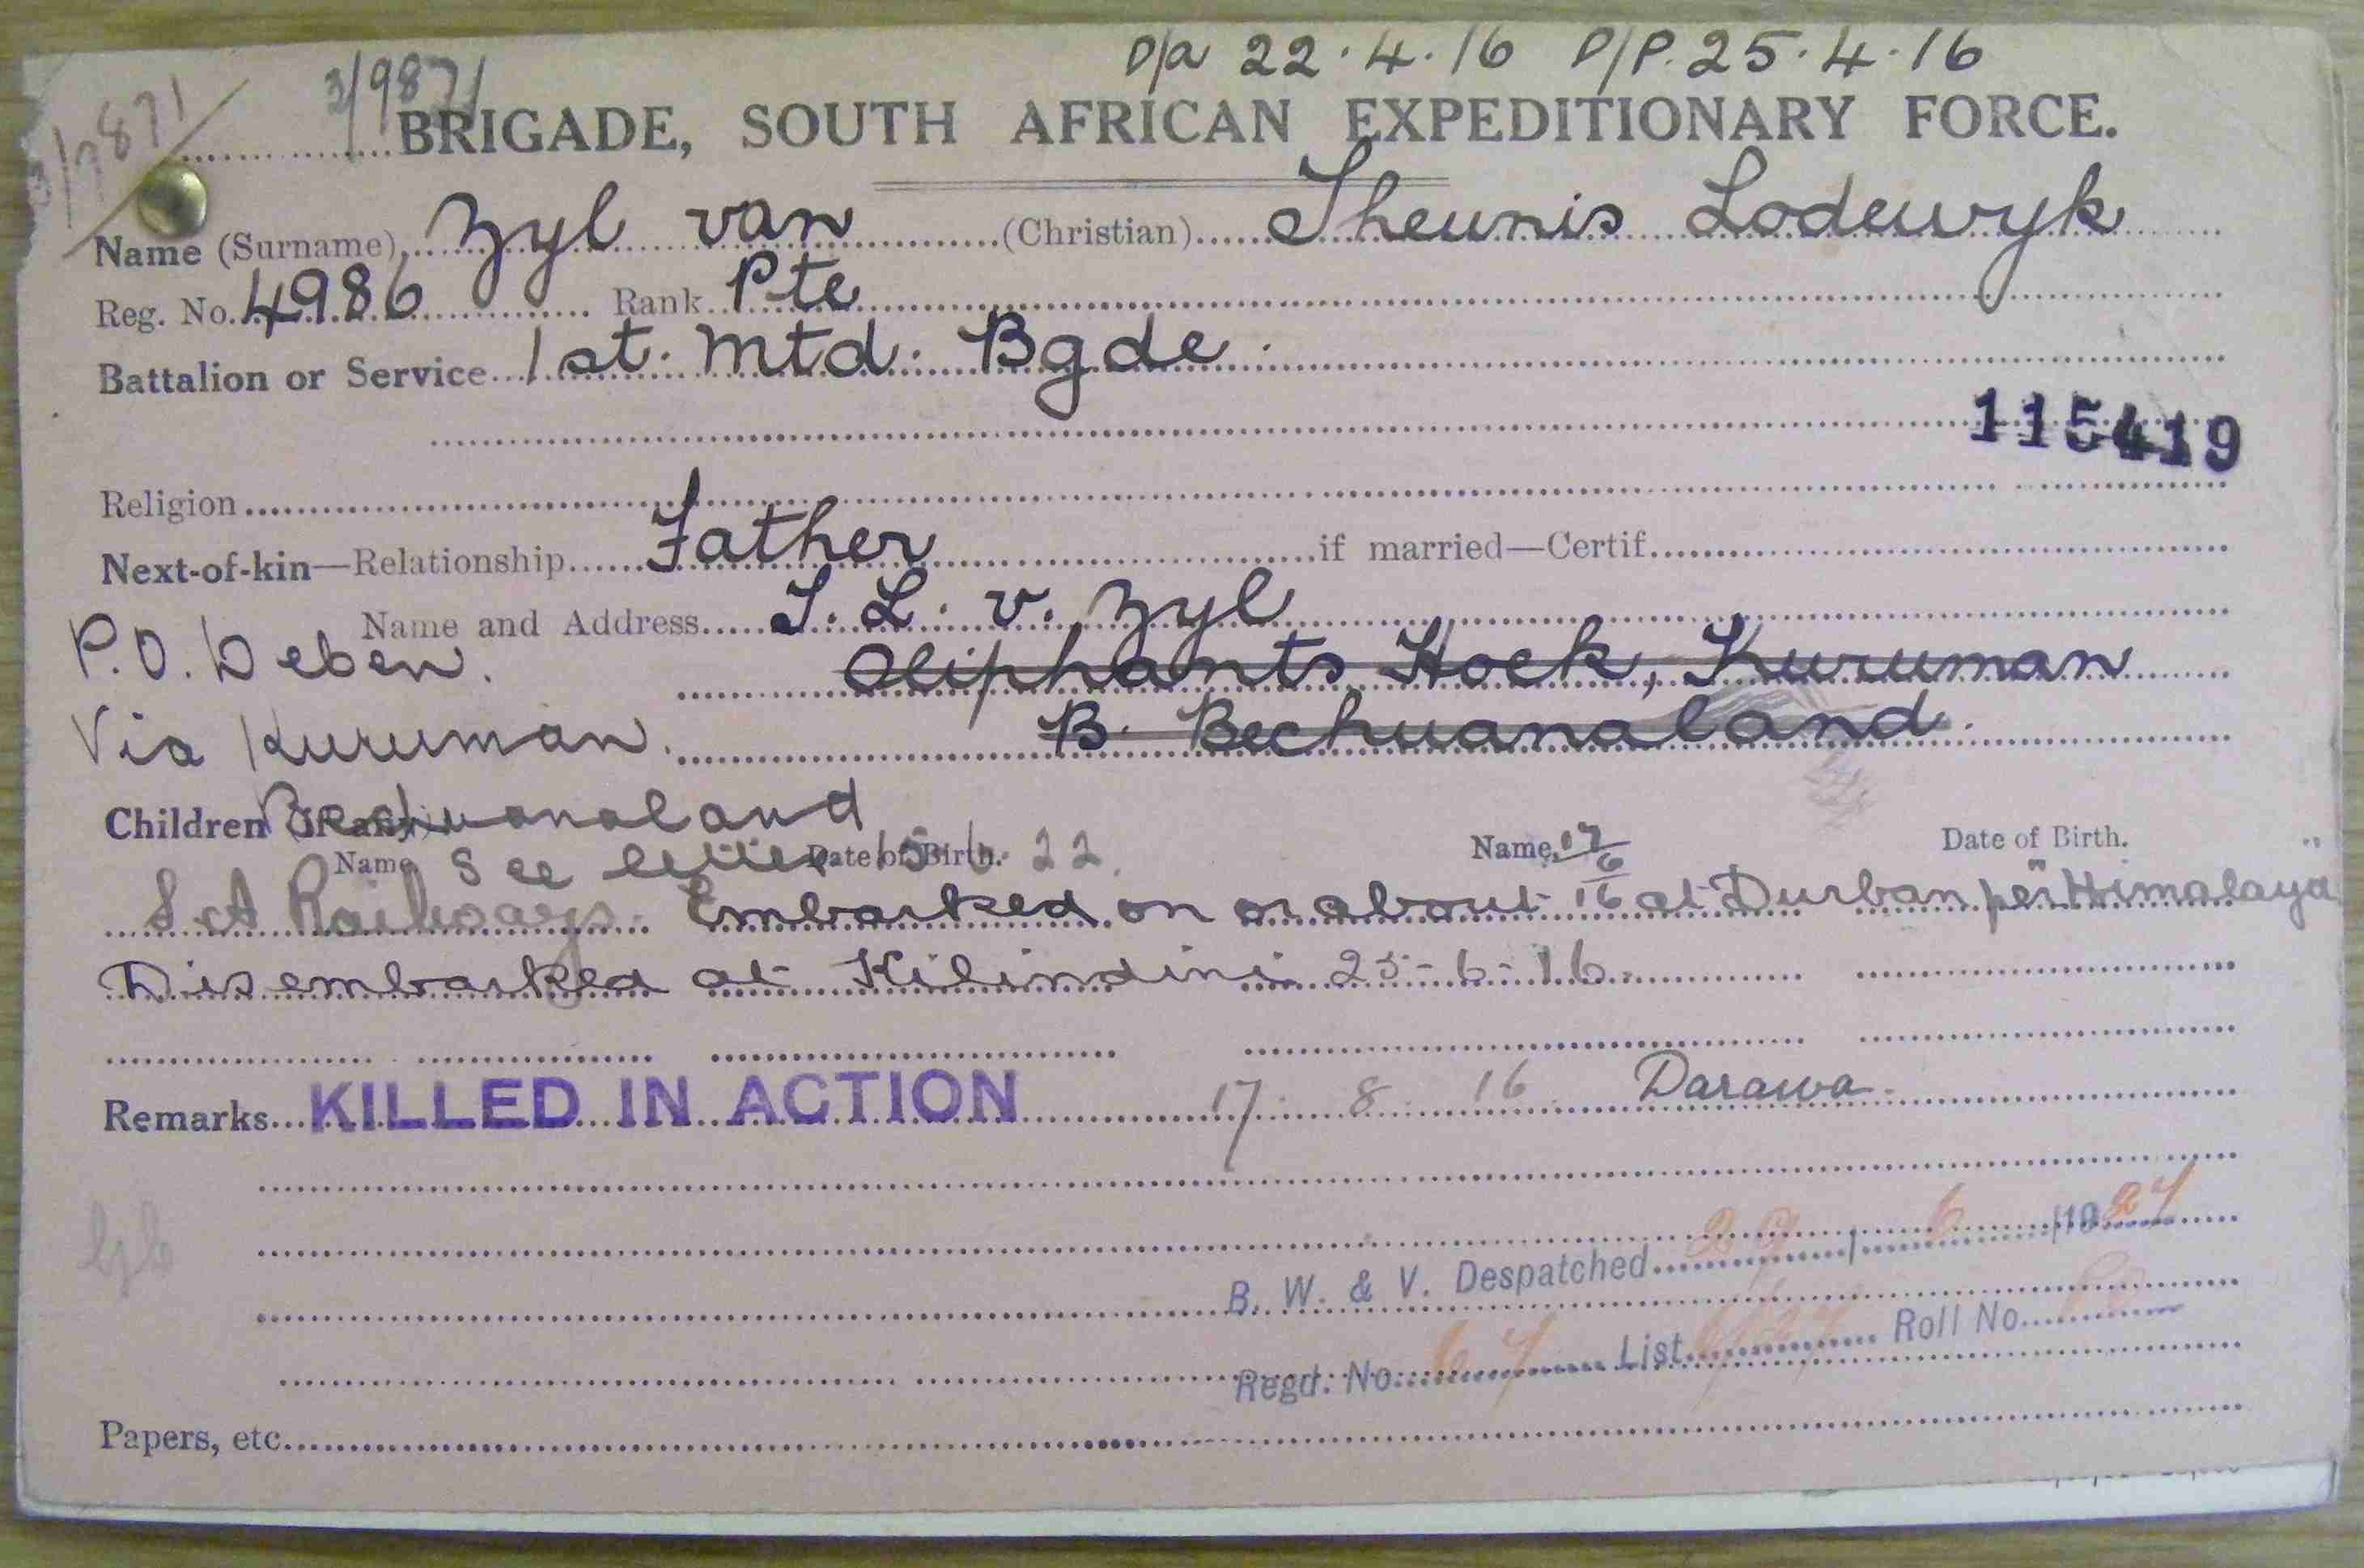 D/a 22.4.16 D/P. 25.4.16
3/9871 3/9871
BRIGADE, SOUTH AFRICAN EXPEDITIONARY FORCE.
Name (Surname) Zyl van (Christian) Theunis Lodewyk
Reg. No. 4986 Rank Pte
Battalion or Service 1st. Mtd. Bgde.
115419
Religion
Next-of-kin—Relationship Father if married—Certif.
Name and Address T. L. v. Zyl
P.O. Deben. Oliphants Hoek, Kuruman
Via Kuruman. B. Bechuanaland.
Children (if any) Bechuanaland
Name See letter Date of Birth. 15 6 22. Name. 17/6 Date of Birth.
S.A Railways. Embarked on or about 16 at Durban per "Himalaya"
Disembarked at Kilindini 25-6-16.
Remarks KILLED IN ACTION 17 8 16 Darawa.
B. W. & V. Despatched 29 / 6 /1924
Regd. No. 64 List Roll No.
Papers, etc.